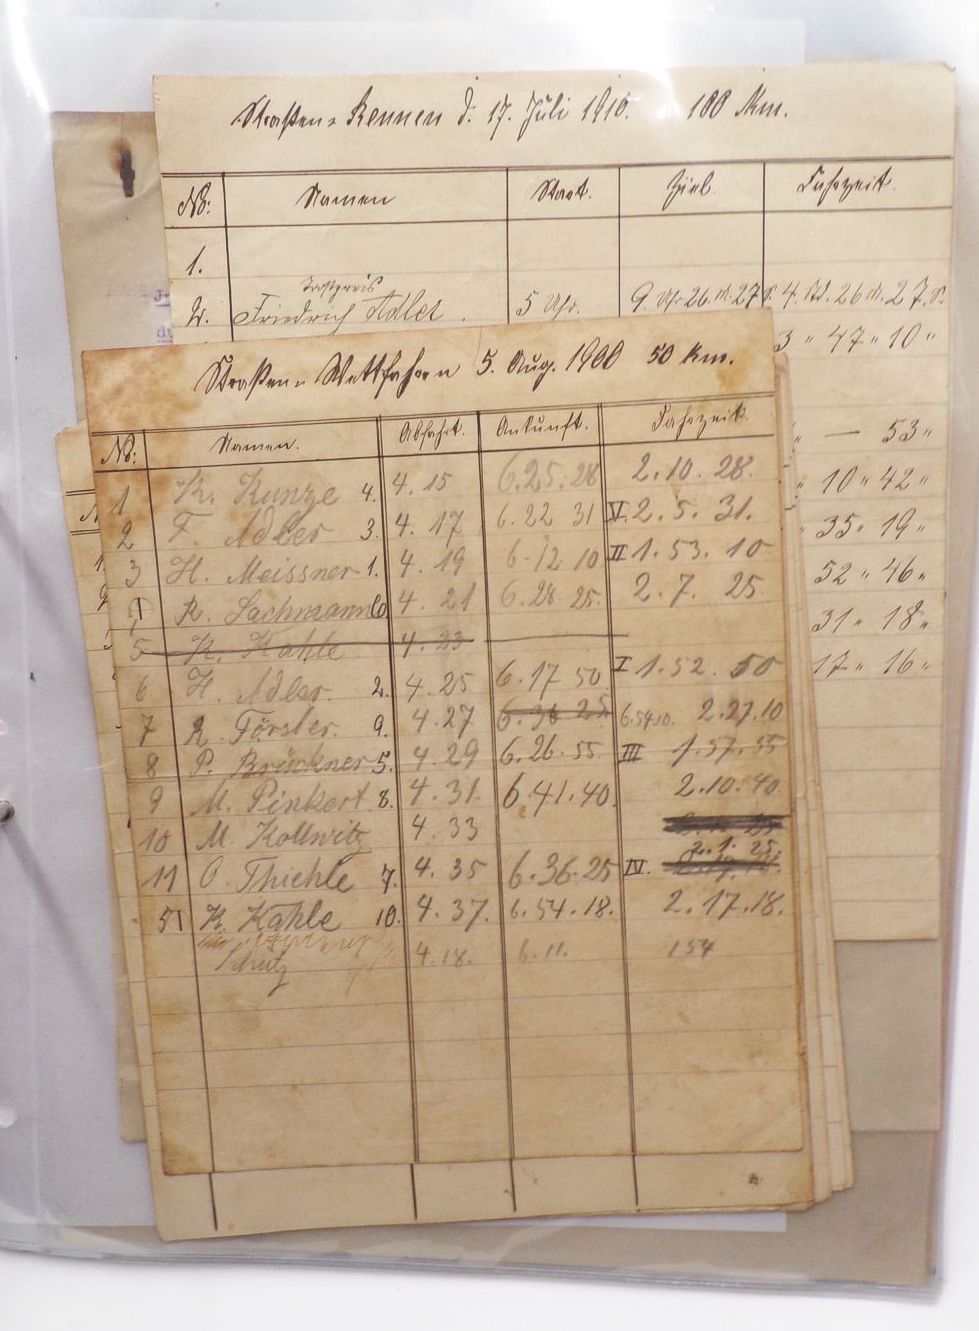 Straßen-Rennen d. 17. Juli 1910. 100 Km.
No: Namen Start. Ziel. Fahrzeit.
1.
2. Friedrich Adler. 5 Uhr. 9. Uhr 26. M. 27 S. 4. Std. 26 M. 27. S.
3 " 47 " 10 "
— 53 "
" 10 " 42 "
" 35 " 19 "
52 " 46 "
31 " 18 "
17 " 16 "
Straßen-Wettfahren 5. Aug. 1900 50 Km.
No: Namen. Abfahrt. Ankunft. Fahrzeit.
1 Kr. Kunze 4. 4. 15 6. 25. 28 2. 10. 28.
2 F. Adler 3. 4. 17 6. 22 31 V. 2. 5. 31.
3 H. Meissner 1. 4. 19 6. 12 10 II 1. 53. 10
R. Lachmann 4. 21 6. 28. 25. 2. 7. 25
5 K. Kahle 4. 23
6 H. Adler. 2. 4. 25 6. 17 50 I 1. 52. 50
7 R. Förster. 9. 4. 27 6. 36 25 6.54.10. 2. 27. 10
8 P. Brückner 5. 4. 29 6. 26. 55. III 1. 57. 55
9 M. Pinkert 8. 4. 31. 6. 41. 40. 2. 10. 40
10 M. Kollwitz 4. 33
11 O. Thiehle 7. 4. 35 6. 36. 25 IV. 2. 1. 25.
51 K. Kahle 10. 4. 37. 6. 54. 18. 2. 17. 18.
Schutz 4. 18. 6. 11. 154